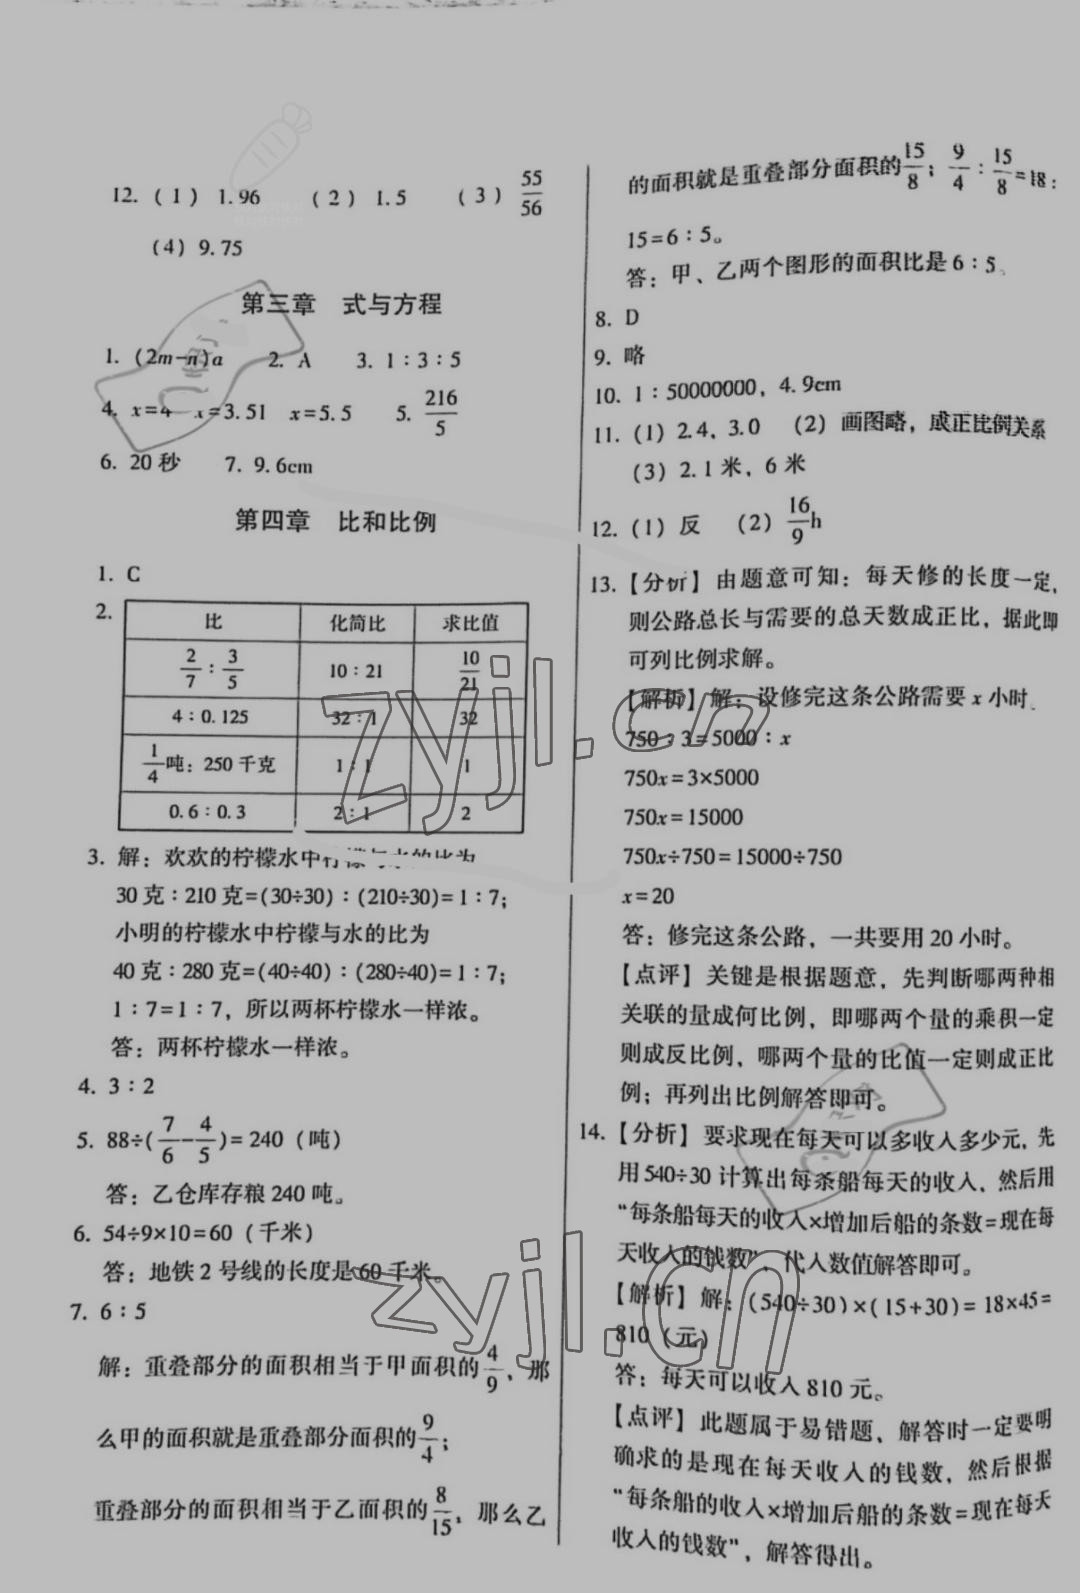 12. (1) 1.96 (2) 1.5 (3) 55/56
(4) 9.75
第三章 式与方程
1. (2m-n)a 2. A 3. 1∶3∶5
4. x=4 x=3.51 x=5.5 5. 216/5
6. 20秒 7. 9.6cm
第四章 比和比例
1. C
2. 比 化简比 求比值
2/7∶3/5 10∶21 10/21
4∶0.125 32∶1 32
1/4吨：250千克 1∶1 1
0.6∶0.3 2∶1 2
3. 解：欢欢的柠檬水中柠檬与水的比为
30克∶210克=(30÷30)∶(210÷30)=1∶7；
小明的柠檬水中柠檬与水的比为
40克∶280克=(40÷40)∶(280÷40)=1∶7；
1∶7=1∶7，所以两杯柠檬水一样浓。
答：两杯柠檬水一样浓。
4. 3∶2
5. 88÷(7/6-4/5)=240（吨）
答：乙仓库存粮240吨。
6. 54÷9×10=60（千米）
答：地铁2号线的长度是60千米。
7. 6∶5
解：重叠部分的面积相当于甲面积的4/9，那
么甲的面积就是重叠部分面积的9/4；
重叠部分的面积相当于乙面积的8/15，那么乙
的面积就是重叠部分面积的15/8；9/4∶15/8=18∶
15=6∶5。
答：甲、乙两个图形的面积比是6∶5。
8. D
9. 略
10. 1∶50000000，4.9cm
11. (1) 2.4，3.0 (2) 画图略，成正比例关系
(3) 2.1米，6米
12. (1) 反 (2) 16/9h
13.【分析】由题意可知：每天修的长度一定，
则公路总长与需要的总天数成正比，据此即
可列比例求解。
【解析】解：设修完这条公路需要x小时。
750∶3=5000∶x
750x=3×5000
750x=15000
750x÷750=15000÷750
x=20
答：修完这条公路，一共要用20小时。
【点评】关键是根据题意，先判断哪两种相
关联的量成何比例，即哪两个量的乘积一定
则成反比例，哪两个量的比值一定则成正比
例；再列出比例解答即可。
14.【分析】要求现在每天可以多收入多少元，先
用540÷30计算出每条船每天的收入，然后用
“每条船每天的收入×增加后船的条数=现在每
天收入的钱数”，代入数值解答即可。
【解析】解：(540÷30)×(15+30)=18×45=
810（元）
答：每天可以收入810元。
【点评】此题属于易错题，解答时一定要明
确求的是现在每天收入的钱数，然后根据
“每条船的收入×增加后船的条数=现在每天
收入的钱数”，解答得出。
zyjl.cn
zyjl.cn